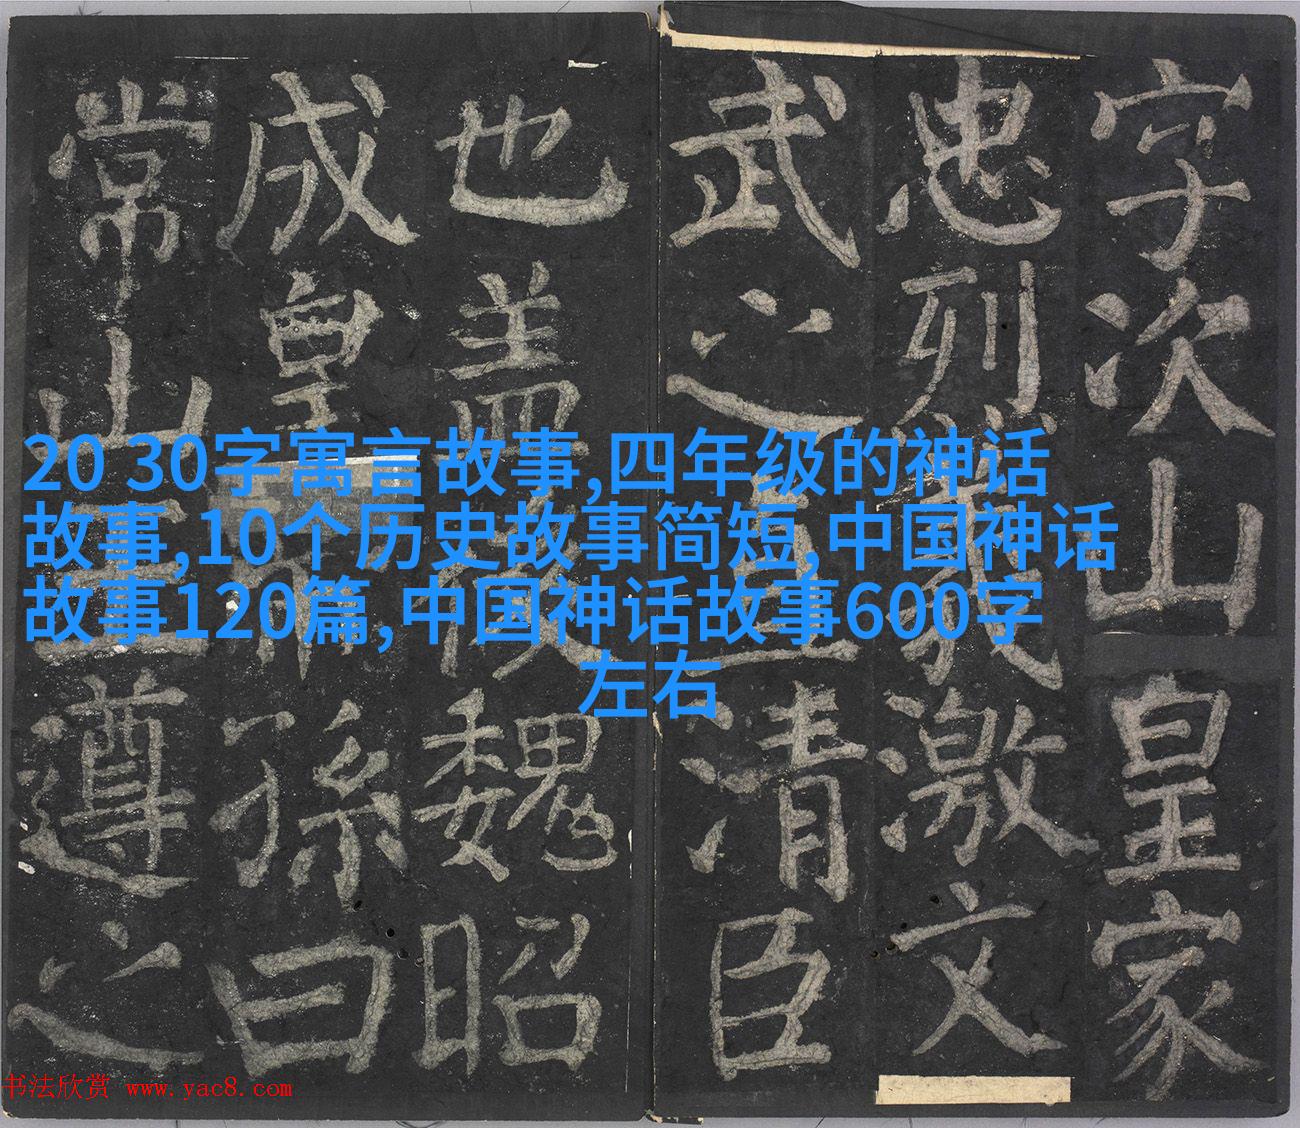 字次山皇家
忠烈義激文
武之直清臣
也盖後魏昭
成皇帝孫曰
常山王遵之
20 30字寓言故事,四年级的神话
故事,10个历史故事简短,中国神话
故事120篇,中国神话故事600字
左右
书法欣赏 www.yac8.com